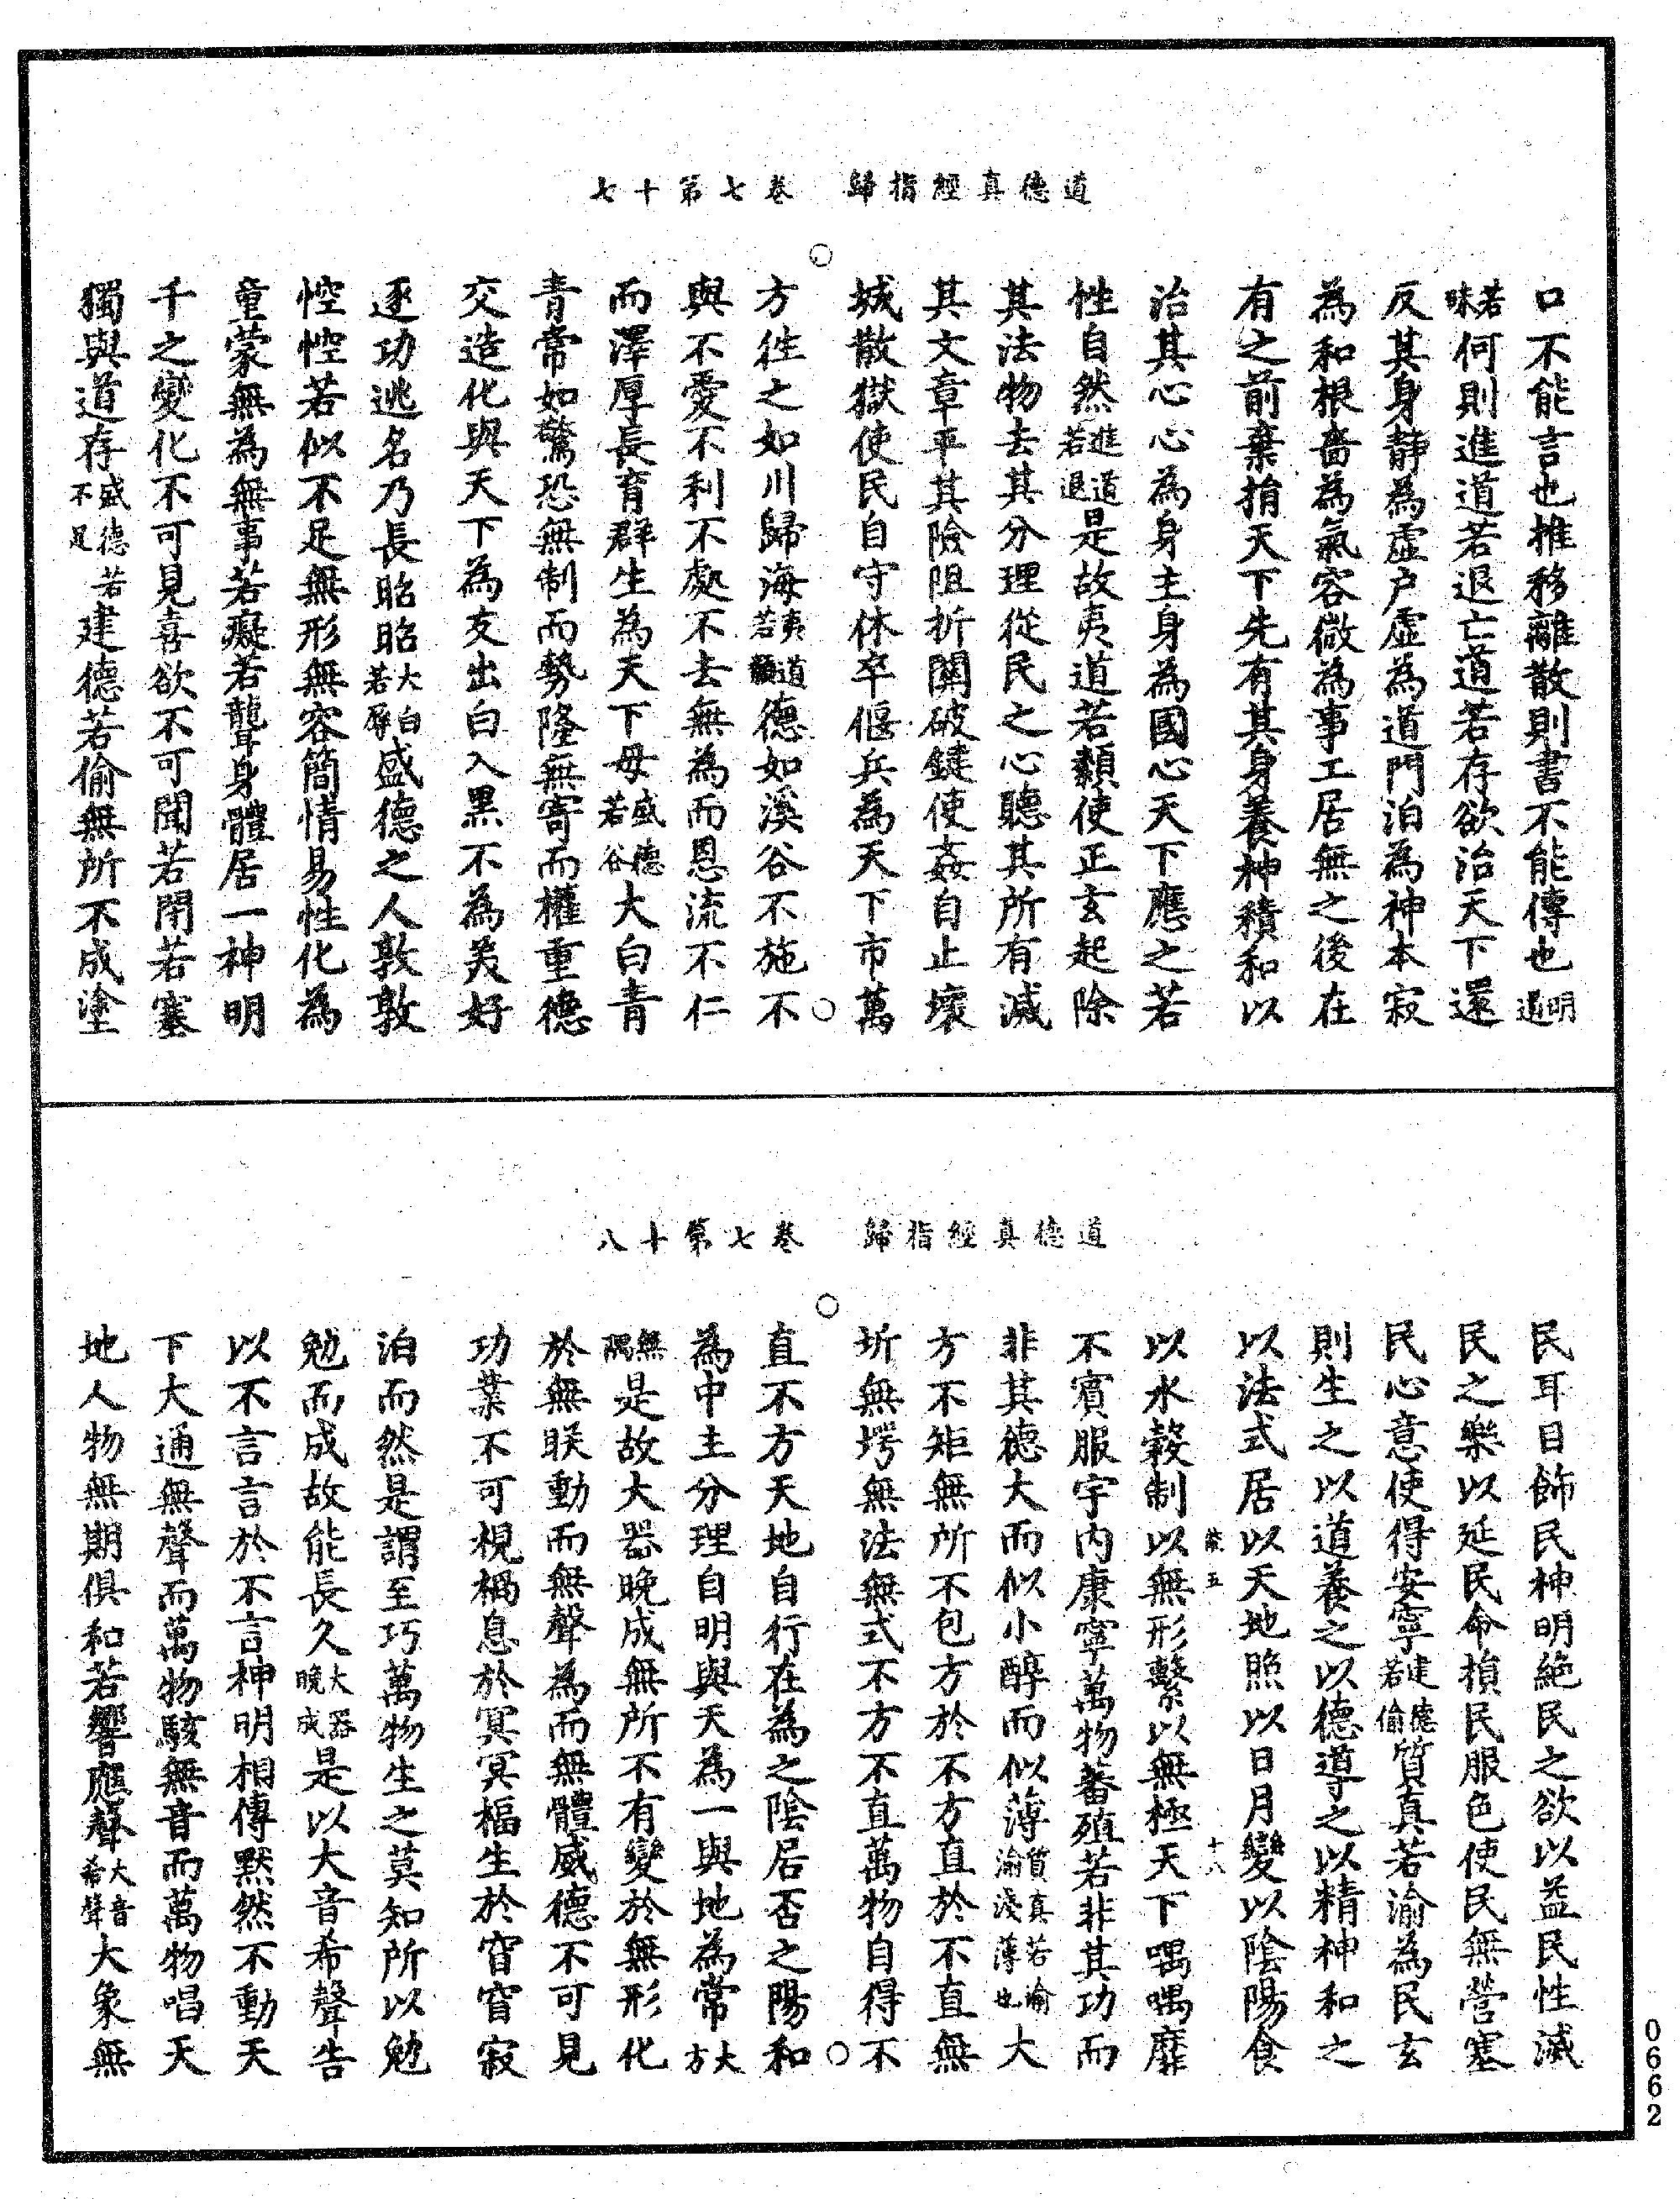 道德真經指歸　卷七第十七
口不能言也推移離散則書不能傳也明道
若昧何則進道若退亡道若存欲治天下還
反其身靜為虛户虛為道門泊為神本寂
為和根嗇為氣容微為事工居無之後在
有之前棄捐天下先有其身養神積和以
治其心心為身主身為國心天下應之若
性自然進道若退是故夷道若纇使正玄起除
其法物去其分理從民之心聽其所有滅
其文章平其險阻折關破鍵使姦自止壞
城散獄使民自守休卒偃兵為天下市萬
方往之如川歸海夷道若纇德如溪谷不施不
與不愛不利不處不去無為而恩流不仁
而澤厚長育群生為天下母盛德若谷大白青
青常如驚恐無制而勢隆無寄而權重德
交造化與天下為友出白入黑不為美好
逐功逃名乃長昭昭大白若辱盛德之人敦敦
悾悾若似不足無形無容簡情易性化為
童蒙無為無事若癡若聾身體居一神明
千之變化不可見喜欲不可聞若閉若塞
獨與道存盛德若不足建德若偷無所不成塗
道德真經指歸　卷七第十八
民耳目飾民神明絕民之欲以益民性滅
民之樂以延民命損民服色使民無營塞
民心意使得安寧建德若偷質真若渝為民玄
則生之以道養之以德導之以精神和之
以法式居以天地照以日月變以陰陽食
能五　十八
以水穀制以無形繫以無極天下喁喁靡
不賓服宇内康寧萬物蕃殖若非其功而
非其德大而似小醇而似薄質真若渝渝淺薄也大
方不矩無所不包方於不方直於不直無
圻無堮無法無式不方不直萬物自得不
直不方天地自行在為之陰居否之陽和
為中主分理自明與天為一與地為常大方
無隅是故大器晚成無所不有變於無形化
於無朕動而無聲為而無體威德不可見
功業不可視禍息於冥冥福生於窅窅寂
泊而然是謂至巧萬物生之莫知所以勉
勉而成故能長久大器晚成是以大音希聲告
以不言言於不言神明相傳默然不動天
下大通無聲而萬物駭無音而萬物唱天
地人物無期俱和若響應聲大音希聲大象無
0662